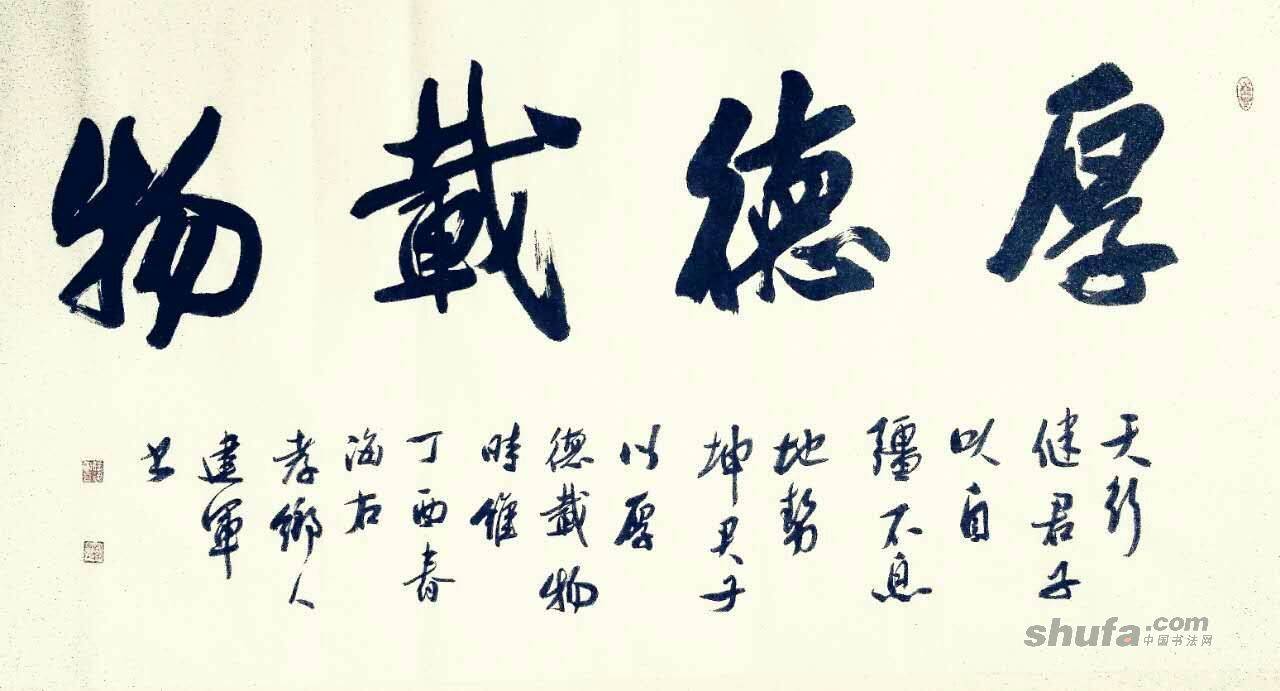 厚德載物
天行
健君子
以自
彊不息
地勢
坤君子
以厚
德載物
時維
丁酉春
海右
孝鄉人
建軍
书
shufa.com
中国书法网